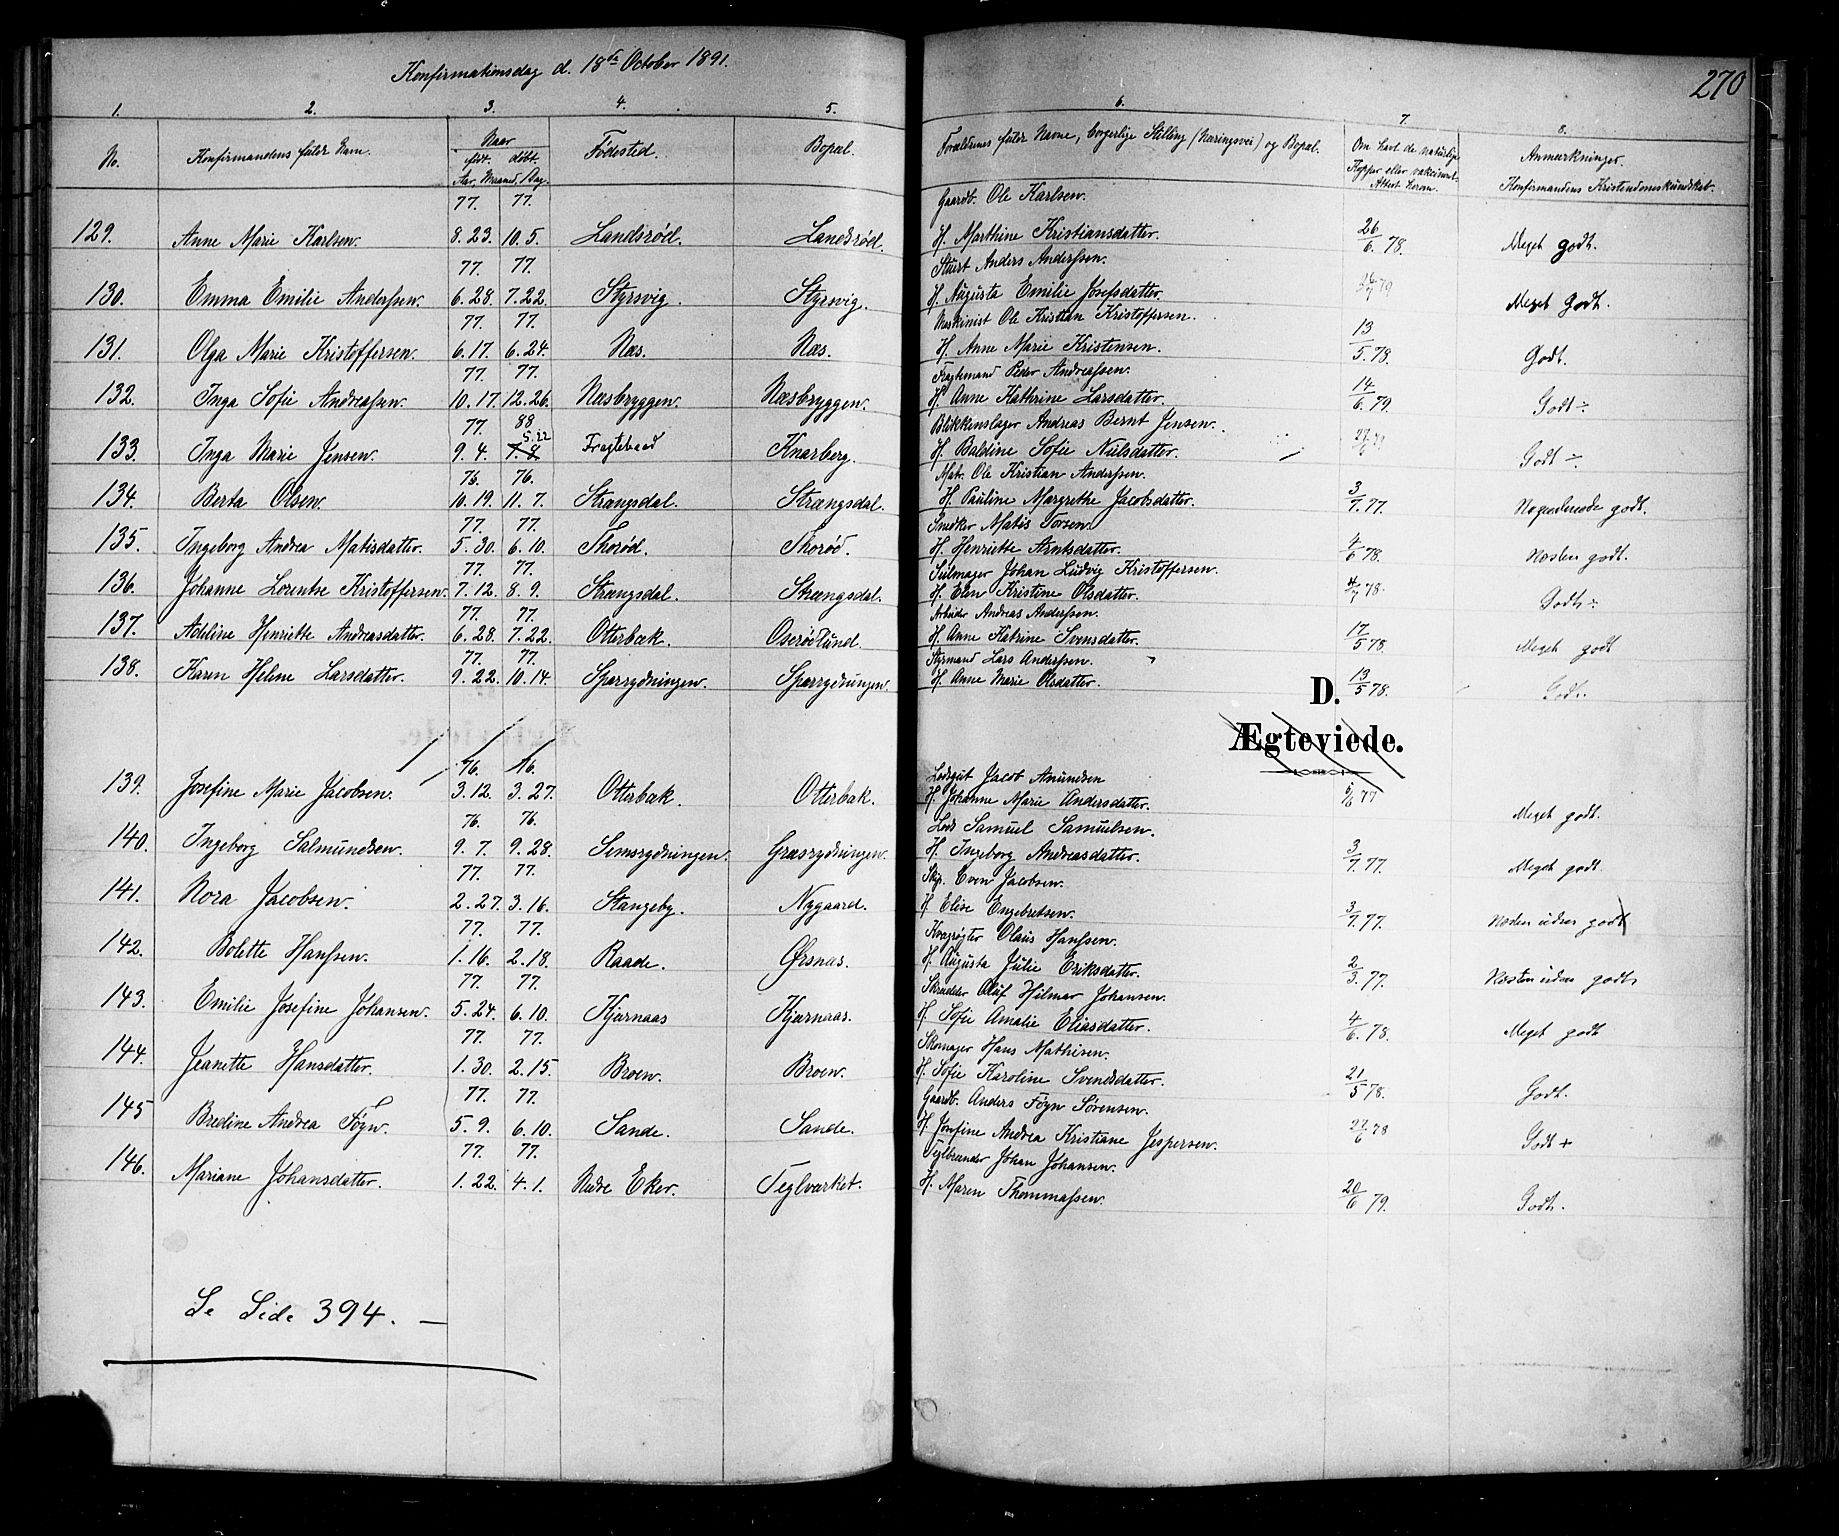 Konfirmationsdag d. 18de October 1891.
270
1. 2. 3. 4. 5. 6. 7. 8.
No. Konfirmandens fulde Navn. Naar født. døbt. Aar, Maaned, Dag. Fødested. Bopæl. Forældrenes fulde Navne, borgerlige Stilling (Næringsvei) og Bopæl. Om havt de naturlige Kopper eller vakcineret. Anmærkninger. Konfirmandens Kristendomskundskab.
77. 77. Gaardb. Ole Karlsen.
129. Anne Marie Karlsen. 8. 23. 10. 5. Landsrød. Landsrød. H. Marthine Kristiansdatter. 26/6 78. Meget godt.
77. 77. Stuert Anders Anderssen.
130. Emma Emilie Anderssen. 6. 28. 7. 22. Styrsvig. Styrsvig. H. Augusta Emilie Josefsdatter. Meget Godt.
77. 77. Maskinist Ole Kristian Kristoffersen.
131. Olga Marie Kristoffersen. 6. 17. 6. 24. Næs. Næs. H. Anne Marie Kristensen. 13/5. 78. Godt.
77. 77. Fragtemand Peder Andreassen.
132. Inga Sofie Andreassen. 10. 17. 12. 26. Næsbryggen. Næsbryggen. H. Anne Kathrine Larsdatter. 14/6. 79. Godt ÷
77. 88 Blikkenslager Andreas Bernt Jensen.
133. Inga Marie Jensen. 9. 4. 5. 22 7. 8 Knarberg. H. Baldine Sofie Nilsdatter. Godt ÷
76. 76. Matr. Ole Kristian Anderssen.
134. Berta Olsen. 10. 19. 11. 7. Strængsdal. Strængsdal. H. Pauline Margrethe Jacobsdatter. 3/7. 77. godt.
77. 77. Snedker Matis Torsen.
135. Ingeborg Andrea Matisdatter. 5. 30. 6. 10. Thorød. Thorød. H. Henriette Arntsdatter. 4/6 78. Næsten godt.
77. 77. Seilmager Johan Ludvig Kristoffersen.
136. Johanne Lorentse Kristoffersen. 7. 12. 8. 9. Strængsdal. Strængsdal. H. Elen Kristine Olsdatter. 4/7 78. Godt ÷
77. 77. Arbeider Andreas Anderssen.
137. Adeline Henriette Andreasdatter. 6. 28. 7. 22. Otterbæk. Oserødlund. H. Anne Katrine Svensdatter. 17/5 78. Meget godt
77. 77. Styrmand Lars Anderssen.
138. Karen Helene Larsdatter. 9. 22. 10. 14. Sparrydningen. Sparrydningen. H. Anne Marie Olsdatter. 13/5 78. Godt.
D.
Ægteviede.
76. 76. Lodsgut Jacob Amundsen
139. Josefine Marie Jacobsen. 3. 12. 3. 27. Otterbæk. Otterbæk. H. Johanne Marie Andersdatter. 5/6 77 Meget godt.
76. 76. Lods Samuel Samuelsen.
140. Ingeborg Salmundsen. 9. 7. 9. 28. Semsrydningen. Græsrydningen. H. Ingeborg Andreasdatter. 3/7. 77. Meget godt.
77. 77. Skip. Even Jacobsen.
141. Nora Jacobsen. 2. 27. 3. 16. Stangeby. Nygaard. H. Elise Engebretsen. 3/7. 77. godt
77. 77. Kvægrøgter Olaus Hanssen.
142. Bolette Hanssen. 1. 16. 2. 18. Raade. Ørsnæs. H. Augusta Julie Eriksdatter. 2/3. 77. godt
77. 77. Skrædder Oluf Hilmar Johansen.
143. Emilie Josefine Johansen. 5. 24. 6. 10. Kjærnaas Kjærnaas. H. Sofie Amalie Eliasdatter. 4/6. 78. Meget godt
77. 77. Skomager Hans Mathisen.
144. Jeanette Hansdatter. 1. 30. 2. 15. Broen. Broen. H. Sofie Karoline Svendsdatter. 21/5 78. Godt.
77. 77. Gaardb. Anders Føyn Sørensen.
145 Bredine Andrea Føyn. 5. 9. 6. 10. Sande. Sande. H. Josefine Andrea Kristiane Jespersen. 27/6 78 Godt +
77. 77. Teglbrænder Johan Johansen.
146. Mariane Johansdatter. 1. 22. 4. 1. Nedre Eker. Teglværket. H. Maren Thommassen. 20/6 79. Godt.
Se Side 394. —